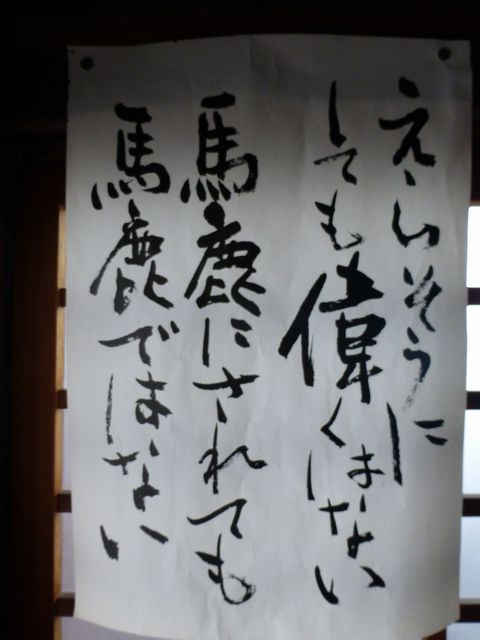 えらそうに
しても偉くはない
馬鹿にされても
馬鹿ではない